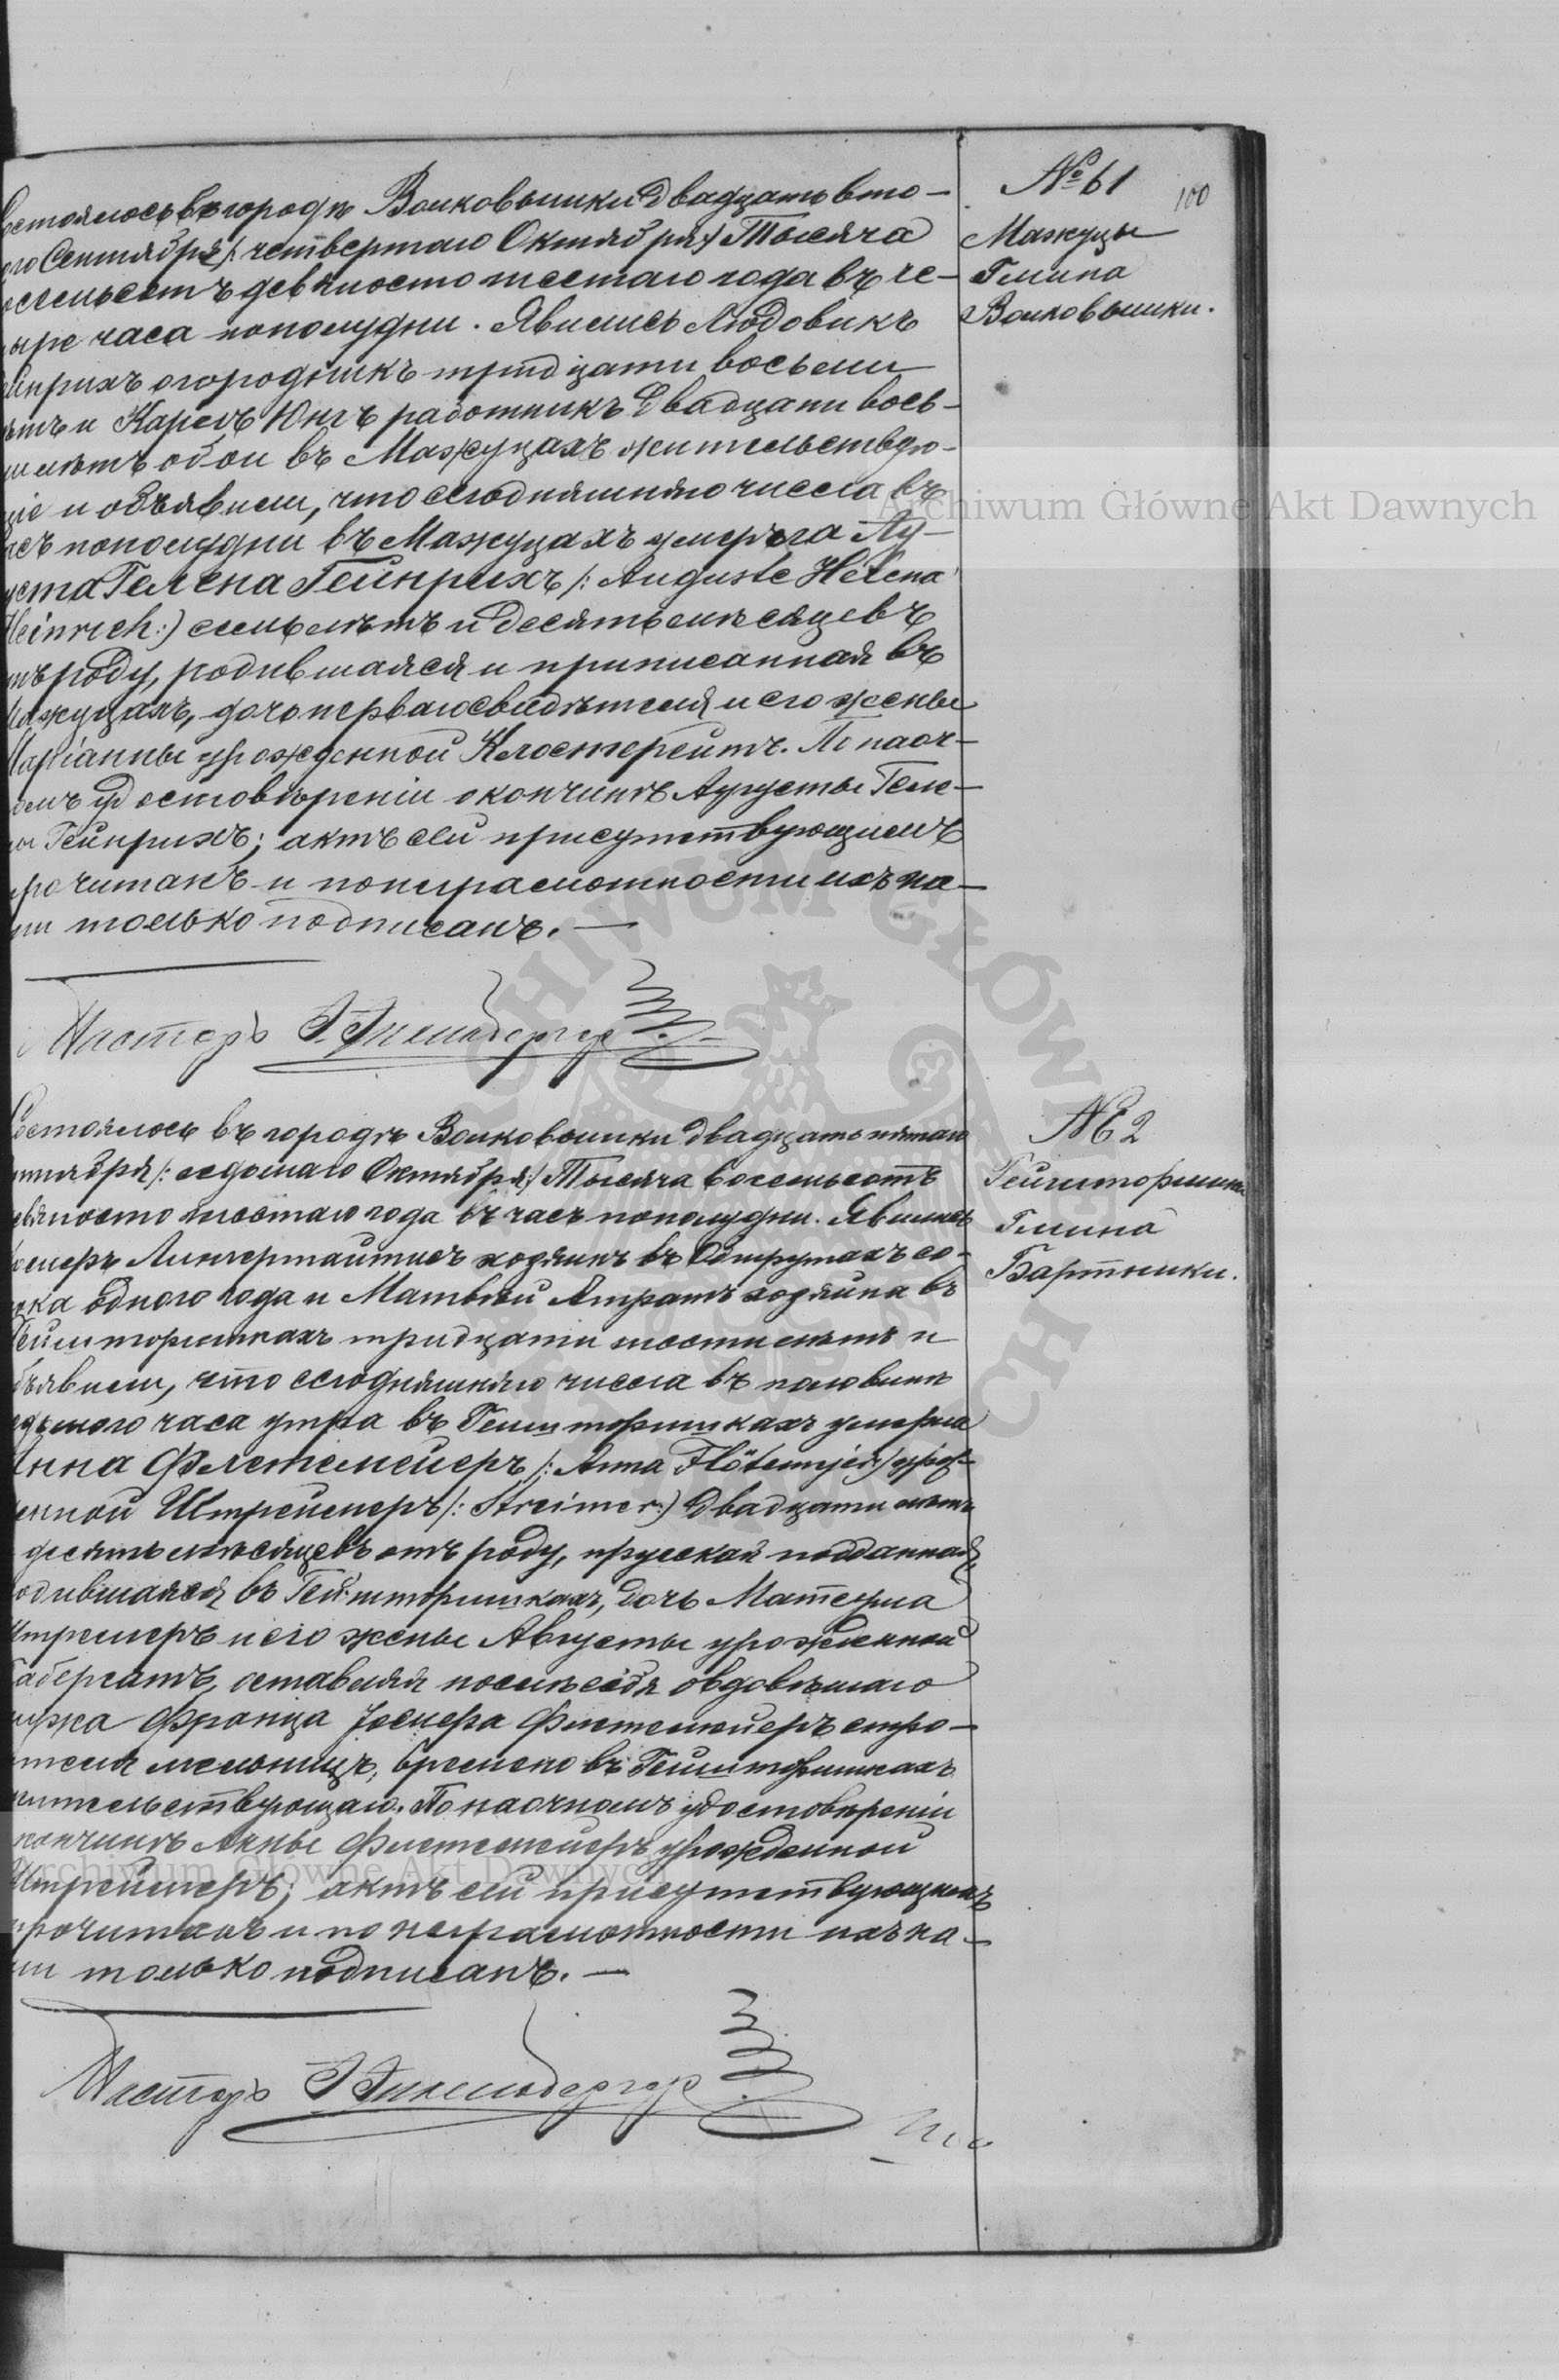 № 61
100
Мажуцы
Гмина
Волковышки.
остоялось въ городѣ Волковышки двадцать вто-
ого Сентября /: четвертаго Октября :/ Тысяча
осемьсотъ девяносто шестаго года въ че-
ыре часа пополудни. Явились Людовикъ
ейнрихъ огородникъ тридцати восьми
ѣтъ и Карлъ Юнгъ работникъ двадцати вось-
ми лѣтъ обои въ Мажуцахъ жительствую-
щіе и объявили, что сегодняшняго числа въ
асъ пополудни въ Мажуцахъ умерла Ау-
уста Гелена Гейнрихъ /: Auguste Helena
Heinrich :/ семь лѣтъ и десять мѣсяцевъ
тъ роду, родившаяся и приписанная въ
ажуцахъ, дочь перваго свидѣтеля и его жены
аріанны урожденной Клостерейтъ. По наоч-
омъ удостовѣреніи о кончинѣ Аугусты Геле-
ы Гейнрихъ; актъ сей присутствующимъ
рочитанъ и по неграмотности ихъ на-
ми только подписанъ. —
Пасторъ
№ 62
Гмина
Бартники.
Состоялось въ городѣ Волковышки двадцать пятаго
ентября /: седьмаго Октября :/ Тысяча восемьсотъ
евяносто шестаго года въ часъ пополудни. Явились
хозяинъ въ со-
ока одного года и Матвѣй хозяинъ въ
тридцати шести лѣтъ и
бъявили, что сегодняшняго числа въ половинѣ
едьмого часа утра въ Гейшторишкахъ умерла
Анна Флетемейеръ /: Anna Flötemejer :/ урож-
енной Штреймеръ /: Streimer :/ двадцати лѣтъ
десять мѣсяцевъ отъ роду, прусская подданная,
одившаяся въ Гейшторишкахъ, дочь Матеуша
Штреймеръ и его жены Августы урожденной
оставляя послѣ себя овдовѣвшаго
мужа Франца Іосифа Флетемейеръ стро-
ителя мельницъ, временно въ Гейшторишкахъ
жительствующаго. По наочномъ удостовѣреніи
кончинѣ Анны Флетемейеръ урожденной
Штреймеръ; актъ сей присутствующимъ
рочитанъ и по неграмотности ихъ на-
ми только подписанъ. —
Пасторъ
Archiwum Główne Akt Dawnych
Archiwum Główne Akt Dawnych